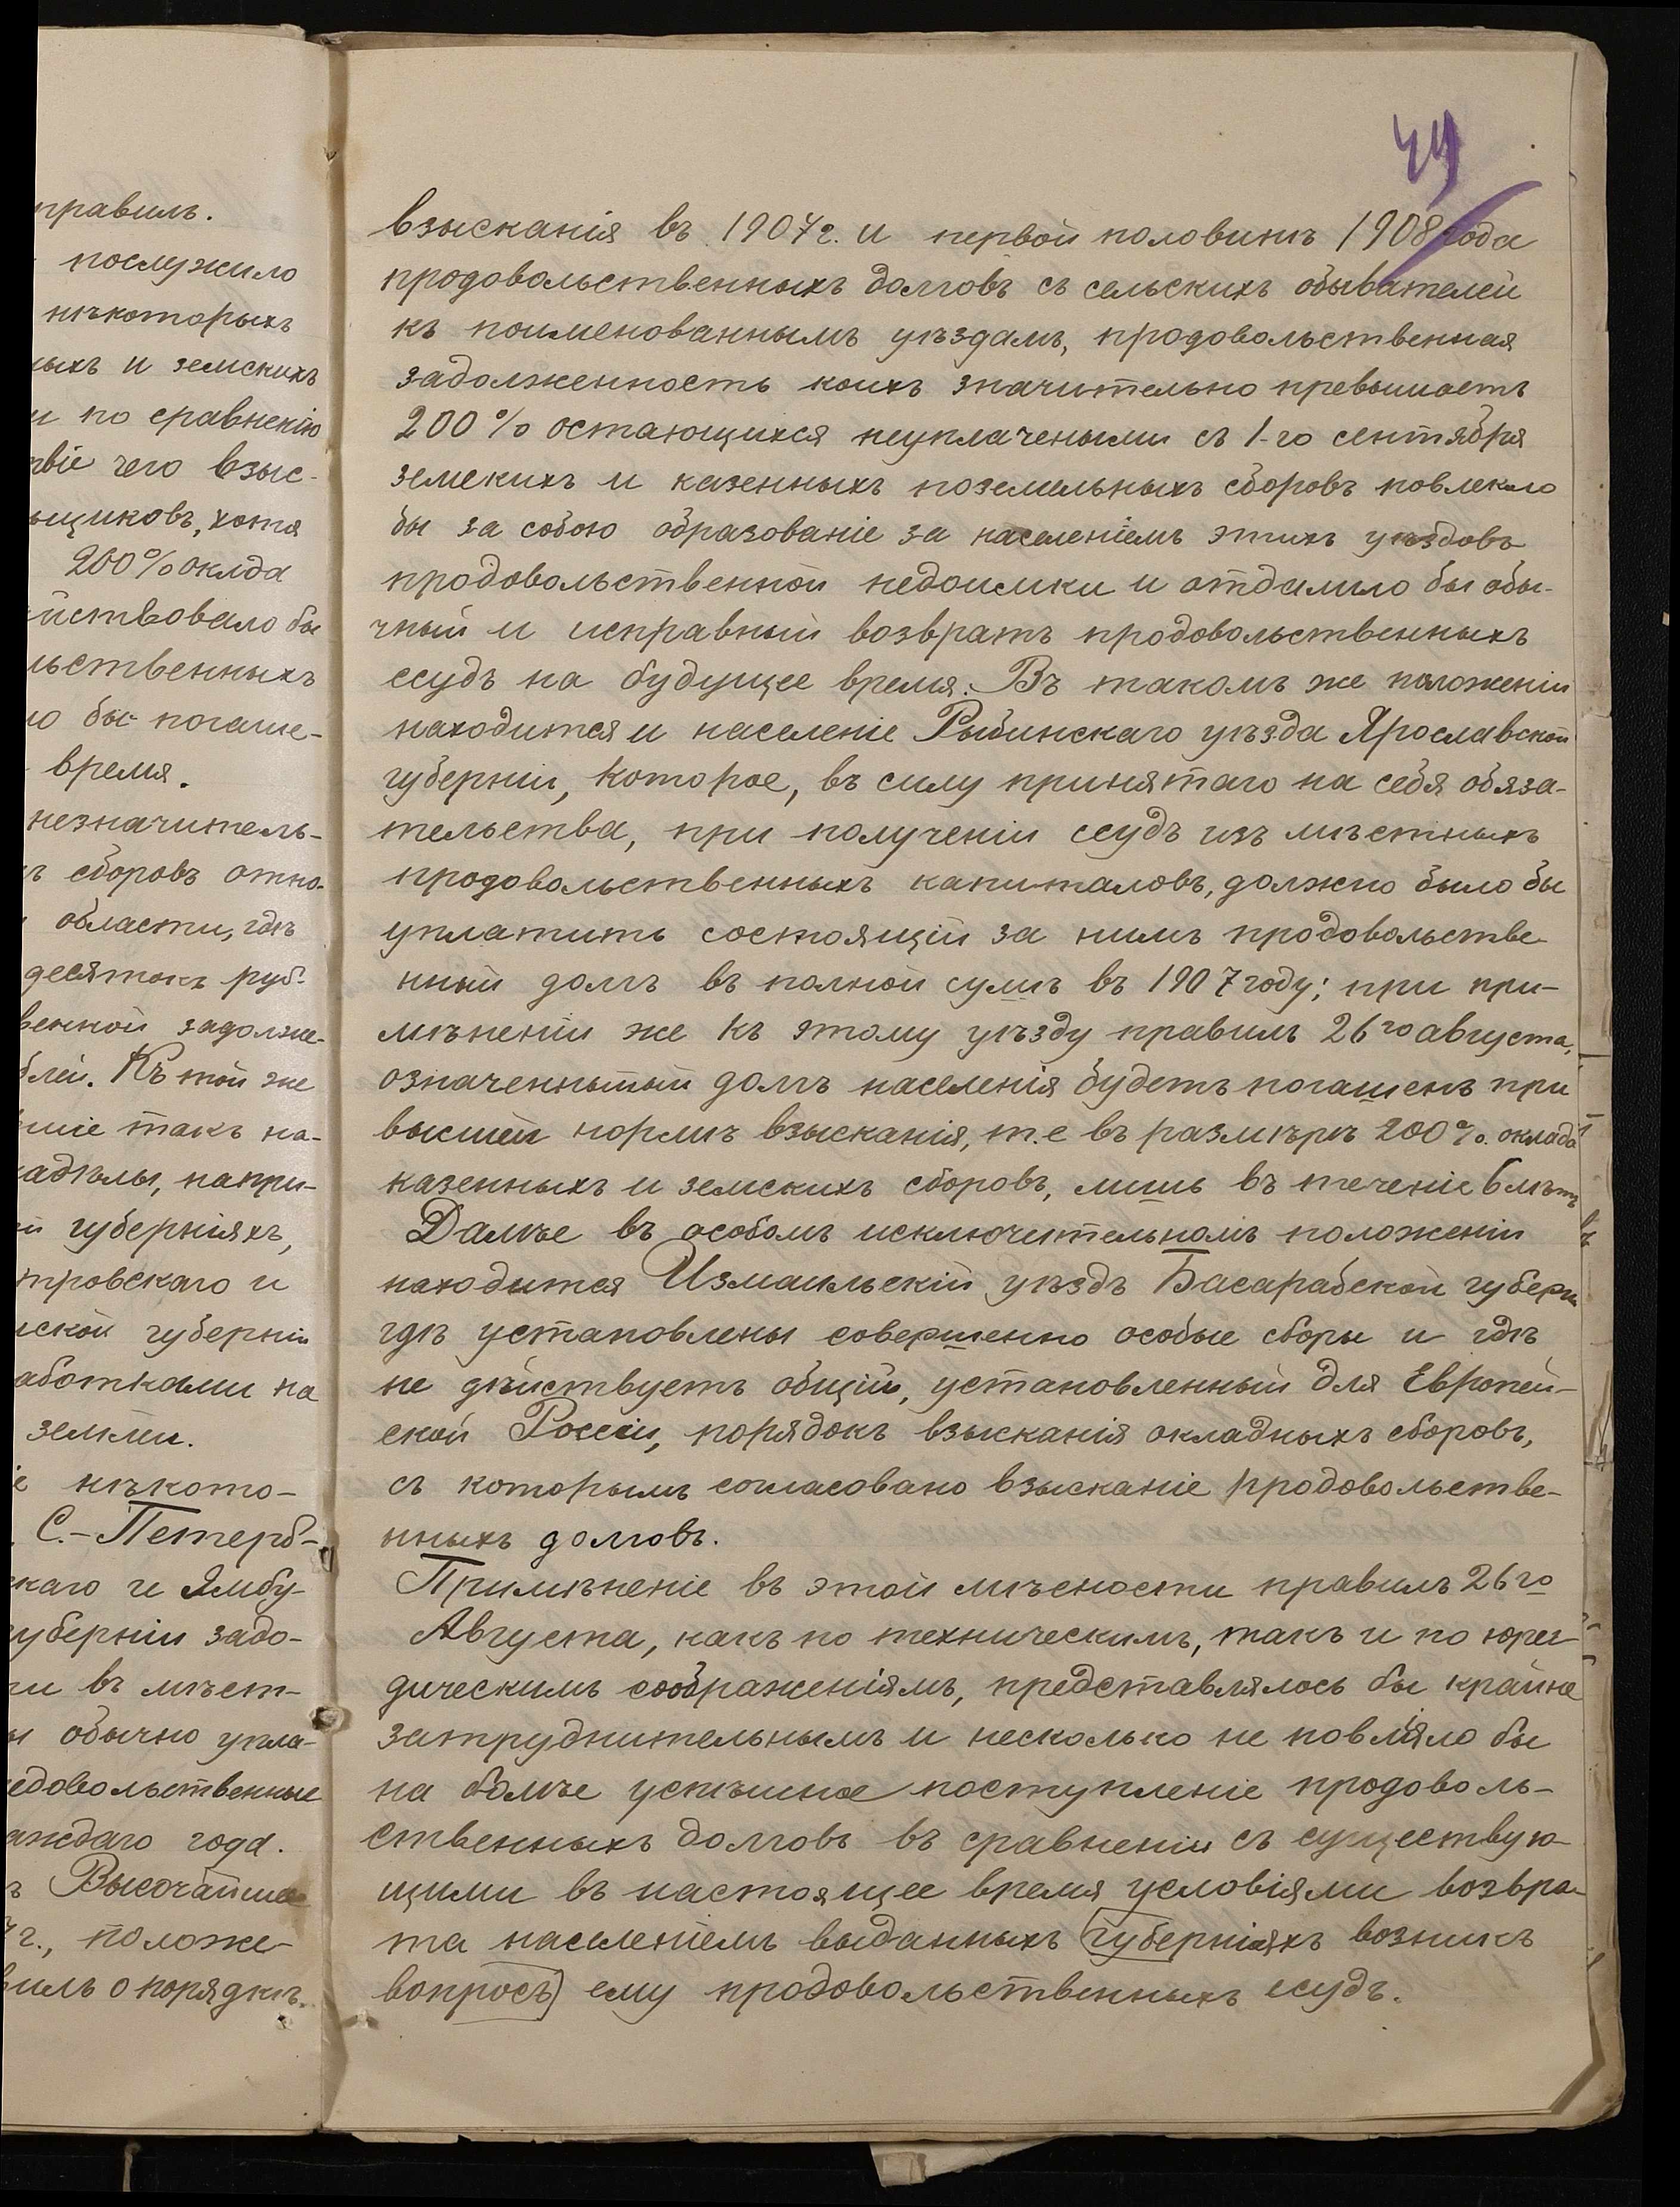 правилъ.
послужило
нѣкоторыхъ
ныхъ и земскихъ
и по сравненію
твіе чего взыс-
ьщиковъ, хотя
200% оклада
йствовало бы
льственныхъ
ло бы погаше-
время.
незначитель-
хъ сборовъ отно-
области, гдѣ
десятокъ руб-
венной задолже-
блей. Къ той же
шіе такъ на-
адѣлы, напри-
й губерніяхъ,
тровскаго и
ской губерніи
аботками на
земли.
е нѣкото-
С.-Петерб-
скаго и Ямбу-
губерніи задо-
ти въ мѣст-
ы обычно упла-
едовольственные
аждаго года.
ъ Высочайше
7 г., положе-
вилъ о порядкѣ
49
взысканія въ 1907 г. и первой половинѣ 1908 года
продовольственныхъ долговъ съ сельскихъ обывателей
къ поименованнымъ уѣздамъ, продовольственная
задолженность коихъ значительно превышаетъ
200% остающихся неуплачеными съ 1-го сентября
земскихъ и казенныхъ поземельныхъ сборовъ повлекло
бы за собою образованіе за населеніемъ этихъ уѣздовъ
продовольственной недоимки и отдалило бы обы-
чный и исправный возвратъ продовольственныхъ
ссудъ на будущее время. Въ такомъ же положеніи
находится и населеніе Рыбинскаго уѣзда Ярославской
губерніи, которое, въ силу принятаго на себя обяза-
тельства, при полученіи ссудъ изъ мѣстныхъ
продовольственныхъ капиталовъ, должно было бы
уплатить состоящій за нимъ продовольстве-
нный долгъ въ полной сумѣ въ 1907 году; при при-
мѣненіи же къ этому уѣзду правилъ 26го августа,
означеннытый долгъ населенія будетъ погашенъ при
высшей нормѣ взысканія, т.е въ размѣрѣ 200%. оклада
казенныхъ и земскихъ сборовъ, лишь въ теченіе 6 лѣтъ
Далѣе въ особомъ исключительномъ положеніи
находится Измаильскій уѣздъ Басарабской губерн
гдѣ установлены совершенно особые сборы и гдѣ
не дѣйствуетъ общій, установленный для Европей-
ской Россіи, порядокъ взысканія окладныхъ сборовъ,
съ которымъ согласовано взысканіе продовольстве-
нныхъ долговъ.
Примѣненіе въ этой мѣсности правилъ 26го
Августа, какъ по техническимъ, такъ и по юри-
дическимъ соображеніямъ, представлялось бы крайне
затруднительнымъ и несколько не повліяло бы
на болѣе успѣшное поступленіе продоволь-
ственныхъ долговъ въ сравненіи съ существую-
щими въ настоящее время условіями возвра-
та населеніемъ выданныхъ (губерніяхъ возникъ
вопросъ) ему продовольственныхъ ссудъ.